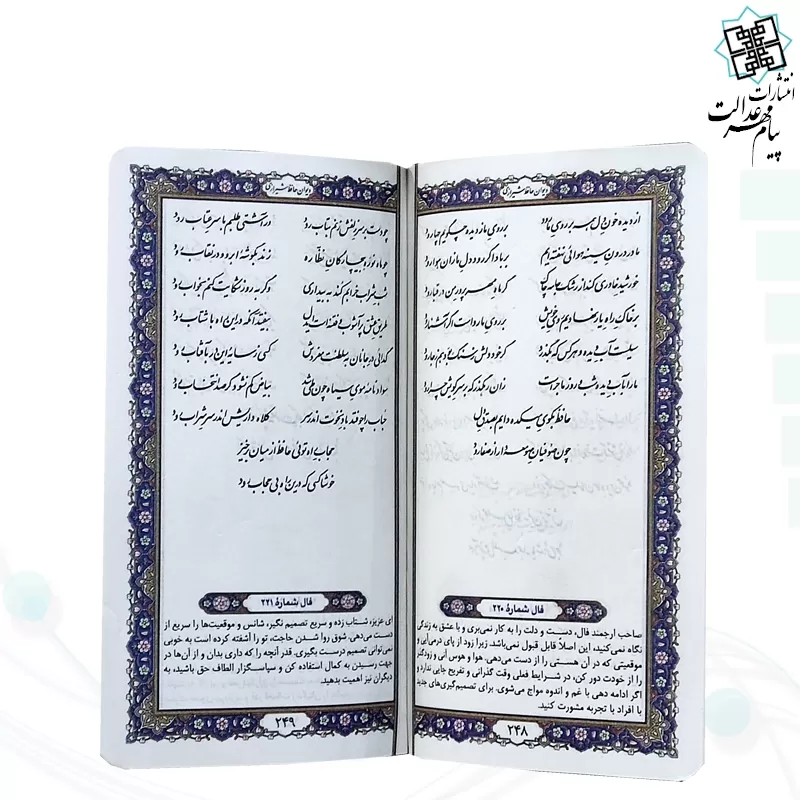 انتشارات
پیام مهر عدالت
دیوان حافظ شیرازی
از دیده خون دل همه بر روی ما رود
بر روی ما ز دیده چگویم چها رود
ما در درون سینه هوائی نهفته‌ایم
بر باد اگر رود دل ما زان هوا رود
خورشید خاوری کند از رشک جامه چاک
گر ماه مهرپرور من در قبا رود
بر خاک راه یار نهادیم روی خویش
بر روی ما رواست اگر آشنا رود
سیلست آب دیده و هر کس که بگذرد
گر خود دلش ز سنگ بود هم ز جا رود
ما را به آب دیده شب و روز ماجراست
زان رهگذر که بر سر کویش چرا رود
حافظ بکوی میکده دایم بصدق دل
چون صوفیان صومعه دار از صفا رود
فال شمارهٔ ۲۲۰
صاحب ارجمند فال، دست و دلت را به کار نمی‌بری و با عشق به زندگی
نگاه نمی‌کنید، این اصلاً قابل قبول نمی‌باشد. زیرا زود از پای درمی‌آیی و
موقعیتی که در آن هستی را از دست می‌دهی. هوا و هوس آنی و زودگذر
را از خودت دور کن، در شرایط فعلی وقت گذرانی و تفریح جایی ندارد و
اگر ادامه دهی با غم و اندوه مواج می‌شوی. برای تصمیم‌گیری‌های جدید
با افراد با تجربه مشورت کنید.
۲۴۸
دیوان حافظ شیرازی
چو دست بر سر زلفش زنم بتاب رود
ور آشتی طلبم با سر عتاب رود
چو ماه نو ره بیچارگان نظاره
زند بگوشهٔ ابرو و در نقاب رود
شب شراب خرابم کند به بیداری
وگر به روز شکایت کنم بخواب رود
طریق عشق پر آشوب و فتنه است ایدل
بیفتد آنکه در این راه با شتاب رود
گدائی در جانان به سلطنت مفروش
کسی ز سایه این در به آفتاب رود
سواد نامه موی سیاه چون طی شد
بیاض کم نشود گر صد انتخاب رود
حباب را چو فتد باد نخوت اندر سر
کلاه داریش اندر سر شراب رود
حجاب راه توئی حافظ از میان برخیز
خوشا کسی که درین راه بی حجاب رود
فال شمارهٔ ۲۲۱
ای عزیز، شتاب زده و سریع تصمیم نگیر، شانس و موقعیت‌ها را سریع از
دست می‌دهی. شوق روا شدن حاجت، تو را آشفته کرده است به خوبی
نمی‌توانی تصمیم درست بگیری. قدر آنچه را که داری بدان و از آن‌ها در
جهت رسیدن به کمال استفاده کن و سپاسگزار الطاف حق باشید، به
دیگران نیز اهمیت بدهید.
۲۴۹